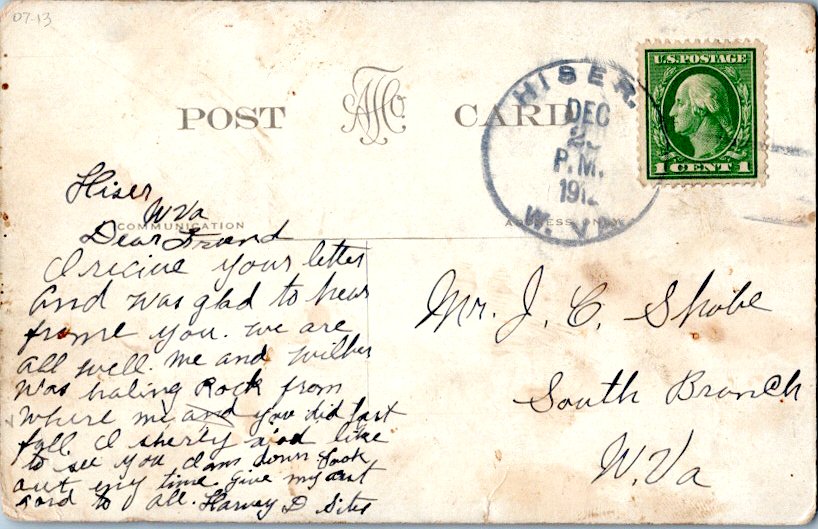 07-13
POST CARD
HISER.
DEC
P.M.
191
W. VA.
U.S. POSTAGE
1 CENT 1
COMMUNICATION
ADDRESS ONLY
Hiser
W Va
Dear Friend
I recive your letter
and was glad to hear
frome you. we are
all well. me and Wilber
was haling Rock from
where me and you did last
fall. I sherly a'od like
to see you down
out eny time give my
card to all. Harvey D Sites
Mr. J. C. Shobe
South Branch
W. Va